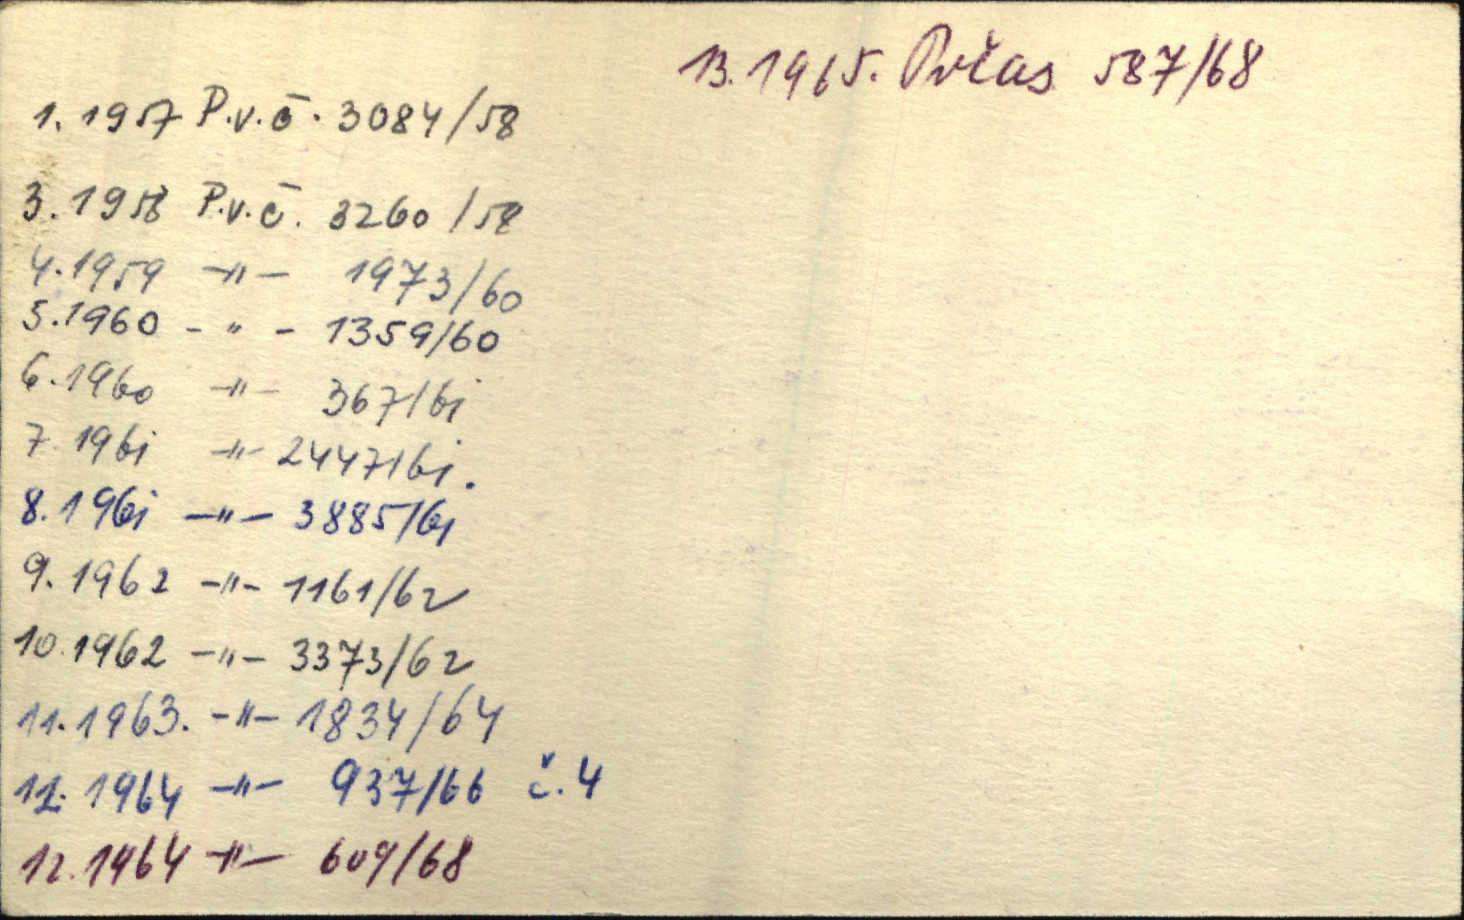 1. 1957 P.v.č. 3084/58
3. 1958 P.v.č. 3260/58
4. 1959 -"- 1973/60
5. 1960 - " - 1359/60
6. 1960 -"- 367/61
7. 1961 -"- 2447/61.
8. 1961 -"- 3885/61
9. 1962 -"- 1161/62
10. 1962 -"- 3373/62
11. 1963. -"- 1834/64
12. 1964 -"- 937/66 č. 4
12. 1964 -"- 609/68
13. 1965. Pvčas 587/68